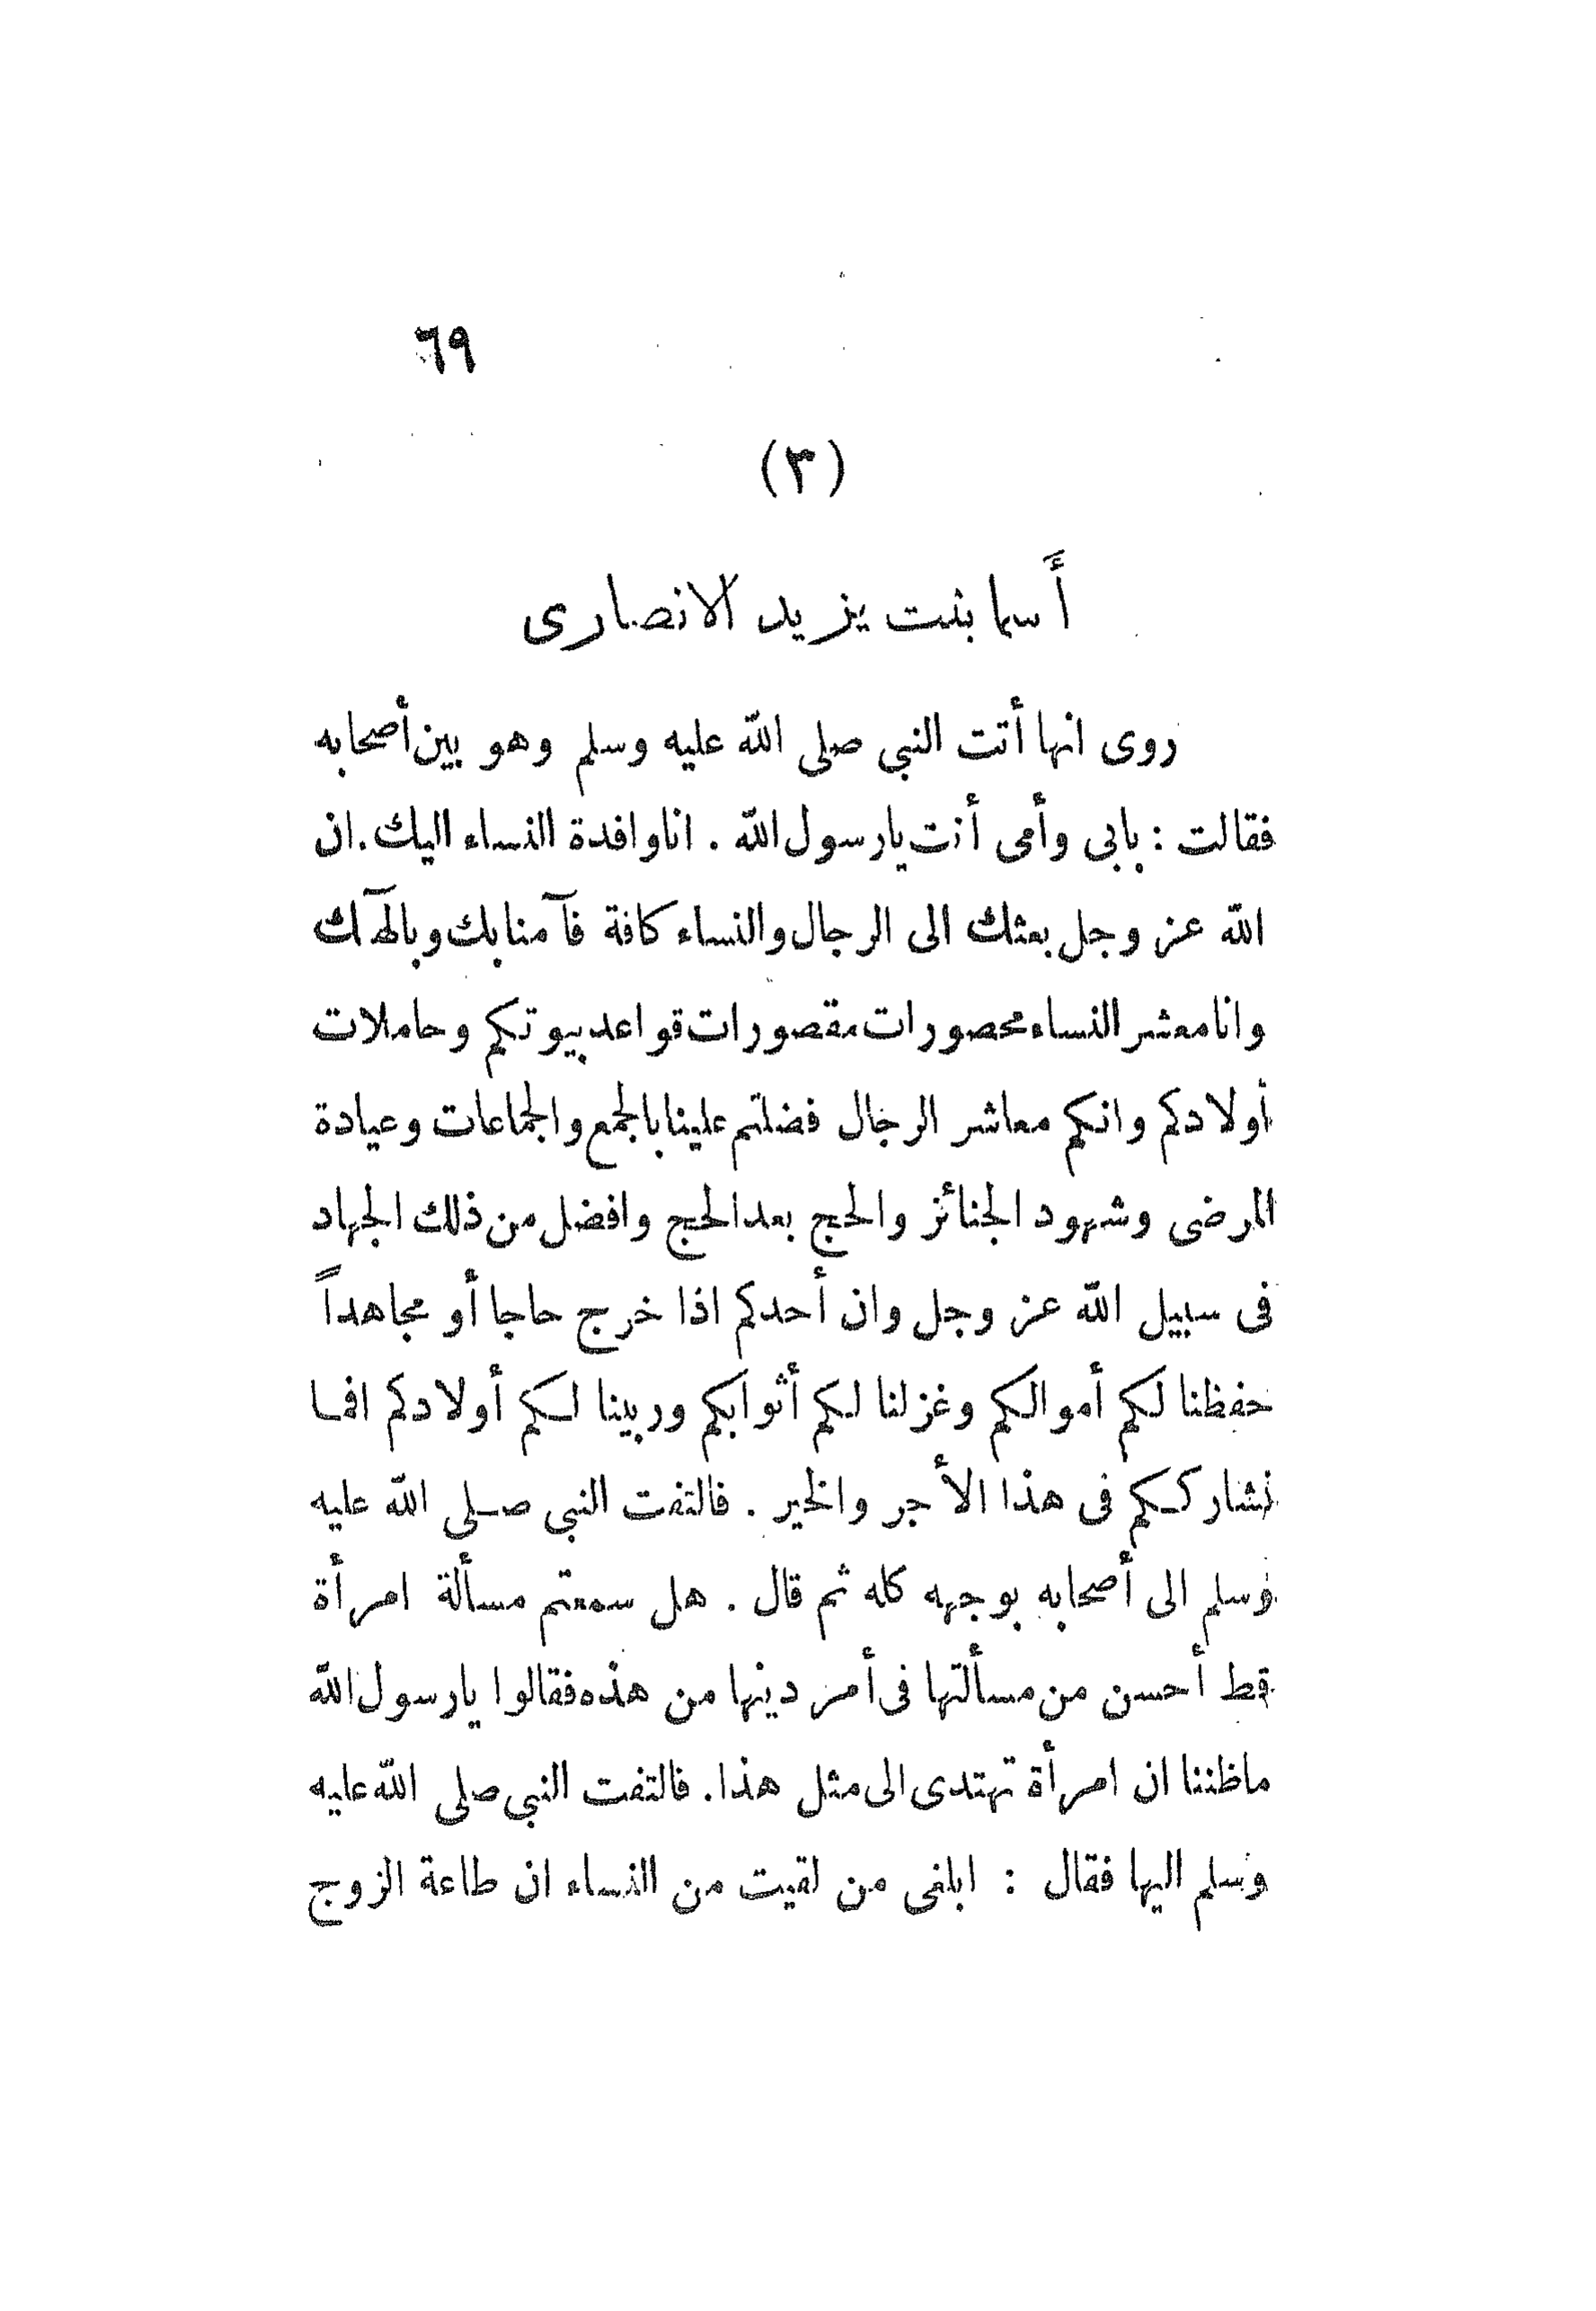 ٦٩
(٣)
أسما بنت يزيد الانصارى
روى انها أتت النبي صلى الله عليه وسلم وهو بين أصحابه
فقالت : بابى وأمى أنت يارسول الله . اناوافدة النساء اليك . ان
الله عز وجل بعثك الى الرجال والنساء كافة فآمنا بك وبالهك
وانا معشر النساء محصورات مقصورات قواعد بيوتكم وحاملات
أولادكم وانكم معاشر الرجال فضلتم علينا بالجمع والجماعات وعيادة
المرضى وشهود الجنائز والحج بعد الحج وافضل من ذلك الجهاد
فى سبيل الله عز وجل وان أحدكم اذا خرج حاجا أو مجاهداً
حفظنا لكم أموالكم وغزلنا لكم أثوابكم وربينا لكم أولادكم افما
نشارككم فى هذا الأجر والخير . فالتفت النبي صلى الله عليه
وسلم الى أصحابه بوجهه كله ثم قال . هل سمعتم مسألة امرأة
قط أحسن من مسألتها فى أمر دينها من هذه فقالوا يارسول الله
ماظننا ان امرأة تهتدى الى مثل هذا . فالتفت النبي صلى الله عليه
وسلم اليها فقال : ابلغى من لقيت من النساء ان طاعة الزوج